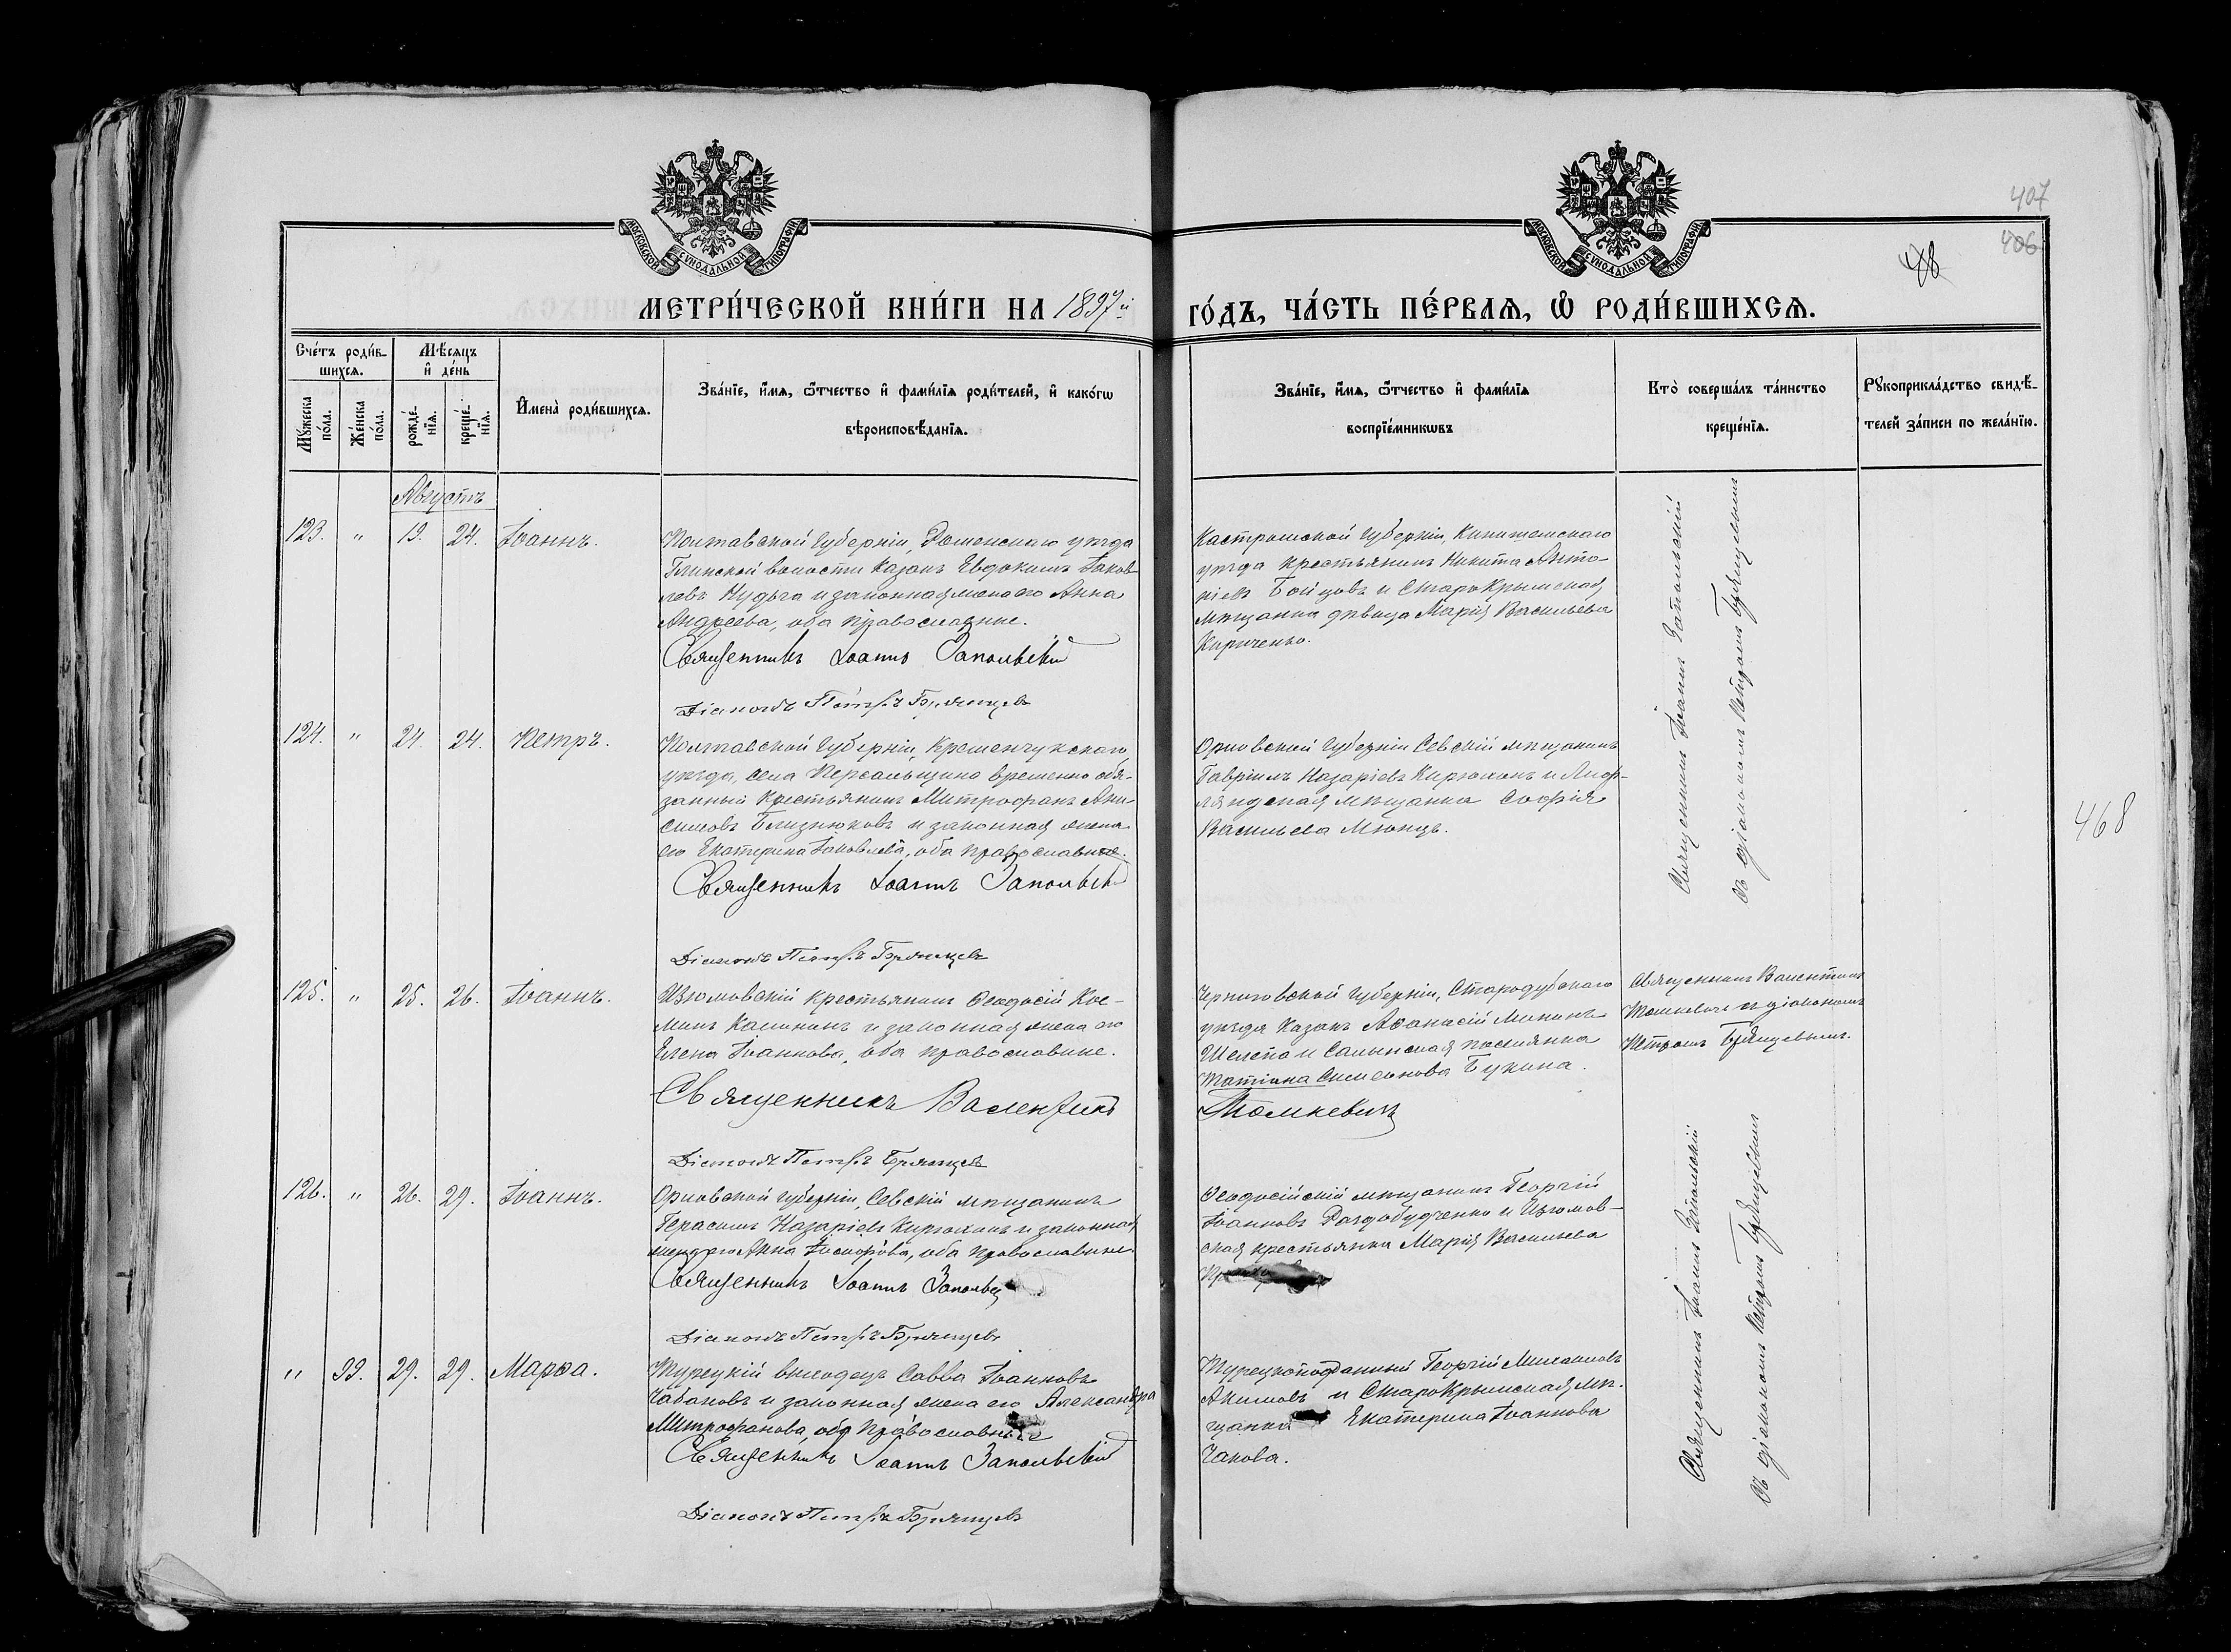 МОСКОВСКОЙ СѴНОДАЛЬНОЙ ТИПОГРАФІИ
МОСКОВСКОЙ СѴНОДАЛЬНОЙ ТИПОГРАФІИ
407
406
48
МЕТРИ́ЧЕСКОЙ КНИ́ГИ НА 1897й
ГО́ДЪ, ЧА́СТЬ ПЕ́РВАѦ, Ѽ РОДИ́ВШИХСѦ.
Сче́тъ роди́в-
шихсѧ.
Мѣ́сѧцъ
и҆ де́нь
Мꙋ́жеска
по́ла.
Же́нска
по́ла.
рожде́-
нїѧ.
креще́-
нїѧ.
И҆мена̀ роди́вшихсѧ.
Зва́нїе, и҆́мѧ, ѻ҆́тчество и҆ фами́лїѧ роди́телей, и҆ како́гѡ
вѣроисповѣ́данїѧ.
Зва́нїе, и҆́мѧ, ѻ҆́тчество и҆ фами́лїѧ
воспрїе́мникѡвъ
Кто̀ соверша́лъ та́инство
креще́нїѧ.
Рꙋкоприкла́дство свидѣ́-
телей за́писи по жела́нїю.
Августъ
123. " 19. 24. Іоаннъ.
Полтавской губерніи, Роменскаго уѣзда
Глинской волости казакъ Евдокимъ Іаков-
левъ Нудьга и законная жена его Анна
Андреева, оба православные.
Священникъ Іоаннъ Запольскій
Діаконъ Петръ Брянцевъ
Костромской губерніи, Кинешемскаго
уѣзда крестьянинъ Никита Анто-
ніевъ Бойцовъ и СтароКрымская
мѣщанка дѣвица Марія Васильева
Кириченко.
Священникъ Іоаннъ Запольскій
съ діакономъ Петромъ Брянцевымъ
124. " 24. 24. Петръ.
Полтавской губерніи, Кременчукскаго
уѣзда, села временно обя-
занный крестьянинъ Митрофанъ Ани-
симовъ Близнюковъ и законная жена
его Екатерина Іаковлева, оба православные.
Священникъ Іоаннъ Запольскій
Діаконъ Петръ Брянцевъ
Орловской губерніи Севскій мѣщанинъ
Гавріилъ Назаріевъ Кирюхинъ и Лиф-
ляндская мѣщанка Софія
Васильева Мюнцъ.
468
125. " 25. 26. Іоаннъ.
Изюмовскій крестьянинъ Ѳеодосій Кос-
минъ Калинкинъ и законная жена его
Елена Іоаннова, оба православные.
Священникъ Валентинъ
Діаконъ Петръ Брянцевъ
Черниговской губерніи, Стародубскаго
уѣзда казакъ Аѳанасій Мининъ
Шелепа и Салынская поселянка
Татіана Симеонова Букина.
Томкевичъ
Священникъ Валентинъ
Томкевичъ и діакономъ
Петромъ Брянцевымъ.
126. " 26. 29. Іоаннъ.
Орловской губерніи, Севскій мѣщанинъ
Герасимъ Назаріевъ Кирюхинъ и законная
жена его Анна Никифорова, оба православные.
Священникъ Іоаннъ Запольск
Діаконъ Петръ Брянцевъ
Ѳеодосійскій мѣщанинъ Георгій
Іоанновъ Раздобудченко и Изюмов-
ская крестьянка Марія Васильева
Священникъ Іоаннъ Запольскій
съ діакономъ Петромъ Брянцевымъ
" 99. 29. 29. Марѳа.
Турецкій выходецъ Савва Іоанновъ
Чабановъ и законная жена его Александра
Митрофанова, оба православные
Священникъ Іоаннъ Запольскій
Діаконъ Петръ Брянцевъ
Турецкоподданный Георгій Михаиловъ
Акимовъ и СтароКрымская мѣ-
щанка Екатерина Іоаннова
Чакова.